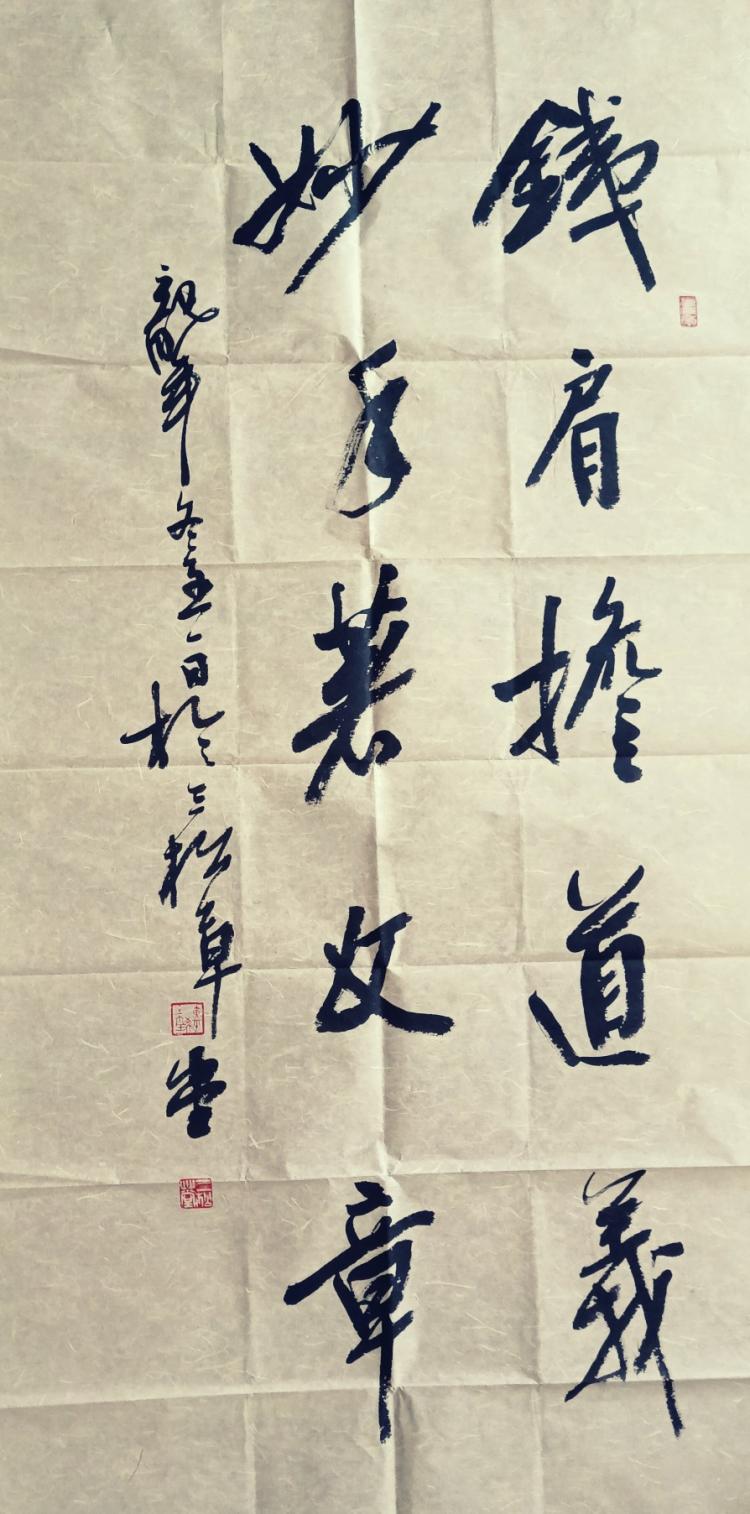 鐵肩擔道義
妙手著文章
龍年冬至日於三松草堂